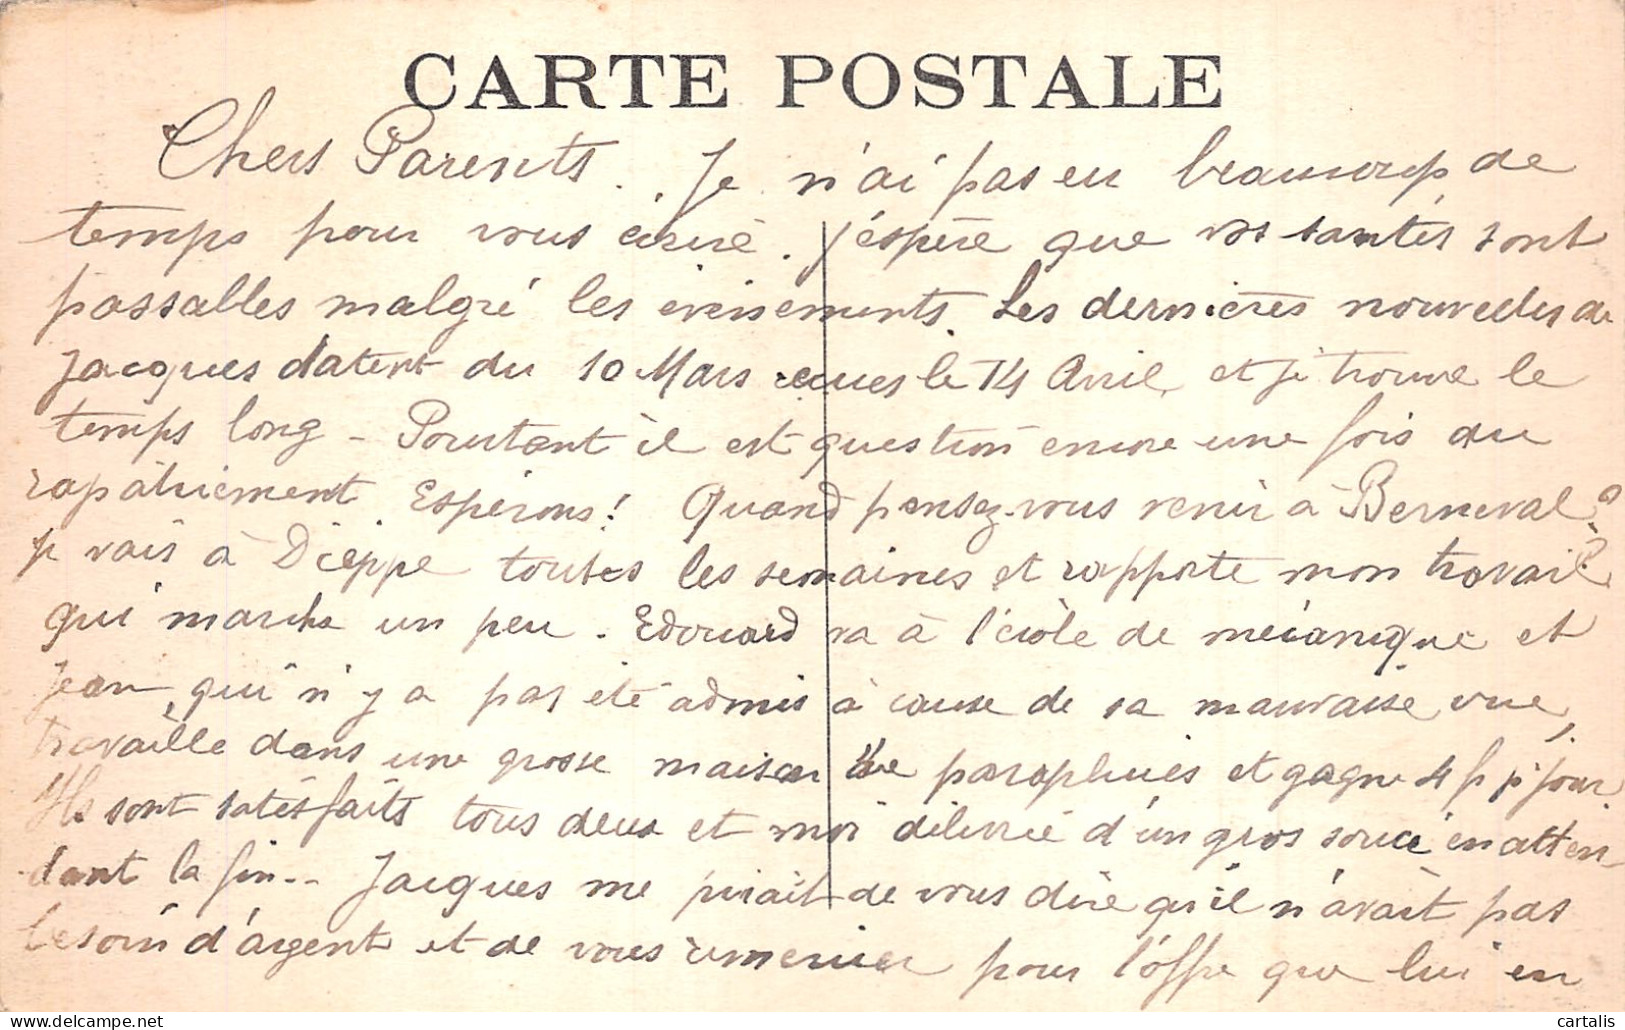 CARTE POSTALE
Chers Parents. Je n'ai pas eu beaucoup de
temps pour vous écrire. j'éspère que vos santés sont
passables malgré les évènements. Les dernières nouvelles de
Jacques datent du 10 Mars reçues le 14 Avril, et je trouve le
temps long - Pourtant il est question encore une fois du
rapatriement Espérons! Quand pensez-vous venir à Berneval?
je vais à Dieppe toutes les semaines et rapporte mon travail
qui marche un peu. Edouard va à l'école de mécanique et
Jean, qui n'y a pas été admis à cause de sa mauvaise vue,
travaille dans une grosse maison de parapluies et gagne 4 f p jour.
Ils sont satisfaits tous deux et moi délivrée d'un gros souci en atten-
dant la fin... Jacques me priait de vous dire qu'il n'avait pas
besoin d'argent et de vous remercier pour l'offre que lui en
cartalis